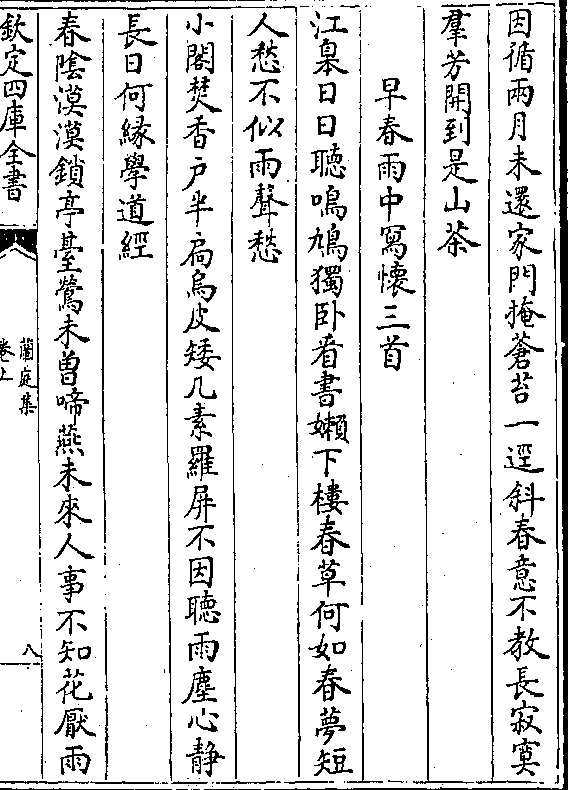 因循兩月未還家門掩蒼苔一逕斜春意不教長寂寞
羣芳開到是山茶
早春雨中寫懷三首
江臯日日聽鳴鳩獨卧看書嬾下樓春草何如春夢短
人愁不似雨聲愁
小閣焚香户半扃烏皮矮几素羅屏不因聽雨塵心静
長日何緣學道經
春陰漠漠鎖亭臺鶯未曽啼燕未來人事不知花厭雨
欽定四庫全書
蘭庭集
卷上
八